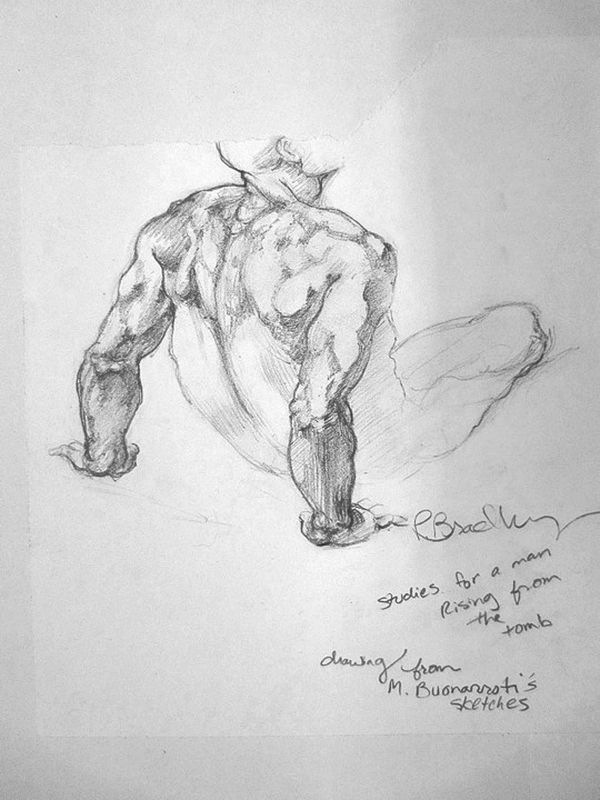 R Bradley
studies for a man
Rising from
the
tomb
drawing from
M. Buonarroti's
sketches